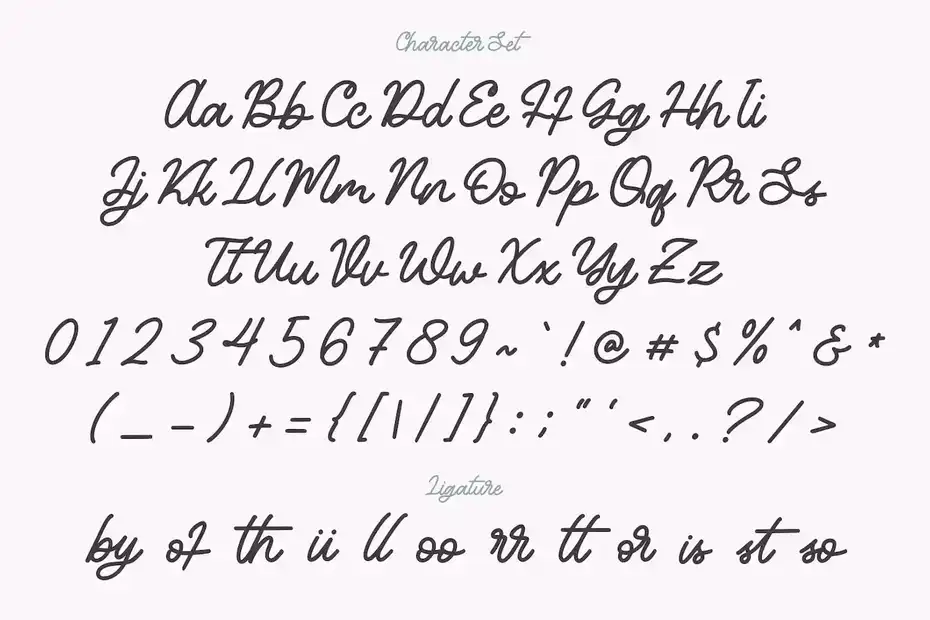 Character Set
Aa Bb Cc Dd Ee Ff Gg Hh Ii
Jj Kk Ll Mm Nn Oo Pp Qq Rr Ss
Tt Uu Vv Ww Xx Yy Zz
0 1 2 3 4 5 6 7 8 9 ~ ` ! @ # $ % ^ & *
( _ - ) + = { [ \ / ] } : ; " ' < , . ? / >
Ligature
by of th ii ll oo rr tt or is st so